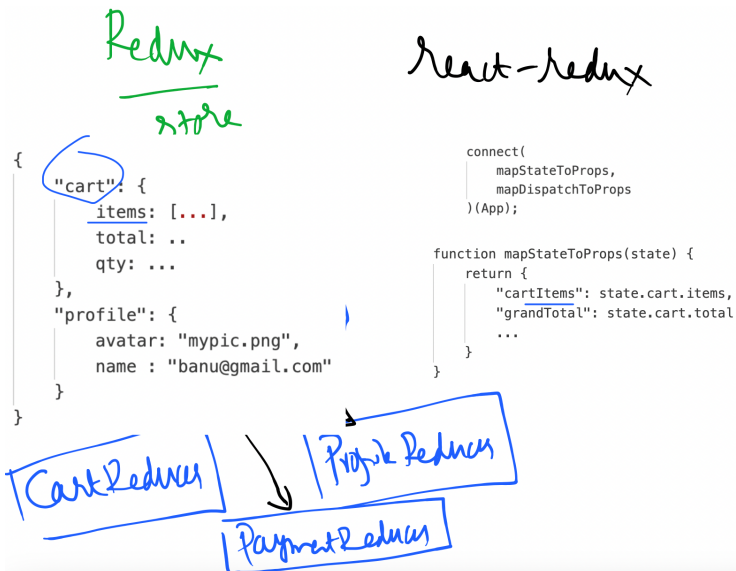 Redux
store
{
"cart": {
items: [...],
total: ..
qty: ...
},
"profile": {
avatar: "mypic.png",
name : "banu@gmail.com"
}
}
react-redux
connect(
mapStateToProps,
mapDispatchToProps
)(App);
function mapStateToProps(state) {
return {
"cartItems": state.cart.items,
"grandTotal": state.cart.total
...
}
}
CartReducer
Profile Reducer
PaymentReducer